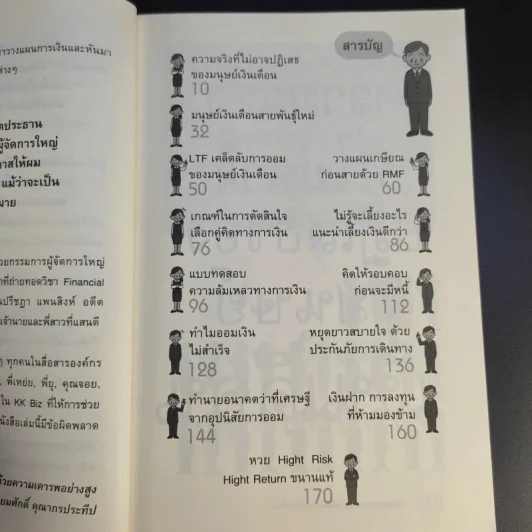 าวางแผนการเงินและหันมา
ต่างๆ
ดประธาน
ผู้จัดการใหญ่
าสให้ผม
แม้ว่าจะเป็น
มาย
วยกรรมการผู้จัดการใหญ่
ที่ถ่ายทอดวิชา Financial
นปรีชฎา แพนสิงห์ อดีต
เจ้านายและพี่สาวที่แสนดี
ๆ ทุกคนในสื่อสารองค์กร
พี่เหย่ย, พี่ยุ, คุณจอย,
ใน KK Biz ที่ให้การช่วย
นังสือเล่มนี้มีข้อผิดพลาด
ด้วยความเคารพอย่างสูง
ยมศักดิ์ คุณากรประทีป
สารบัญ
ความจริงที่ไม่อาจปฏิเสธ
ของมนุษย์เงินเดือน
10
มนุษย์เงินเดือนสายพันธุ์ใหม่
32
LTF เคล็ดลับการออม
ของมนุษย์เงินเดือน
50
วางแผนเกษียณ
ก่อนสายด้วย RMF
60
เกณฑ์ในการตัดสินใจ
เลือกคู่คิดทางการเงิน
76
ไม่รู้จะเลี้ยงอะไร
แนะนำเลี้ยงเงินดีกว่า
86
แบบทดสอบ
ความล้มเหลวทางการเงิน
96
คิดให้รอบคอบ
ก่อนจะมีหนี้
112
ทำไมออมเงิน
ไม่สำเร็จ
128
หยุดยาวสบายใจ ด้วย
ประกันภัยการเดินทาง
136
ทำนายอนาคตว่าที่เศรษฐี
จากอุปนิสัยการออม
144
เงินฝาก การลงทุน
ที่ห้ามมองข้าม
160
หวย Hight Risk
Hight Return ขนานแท้
170